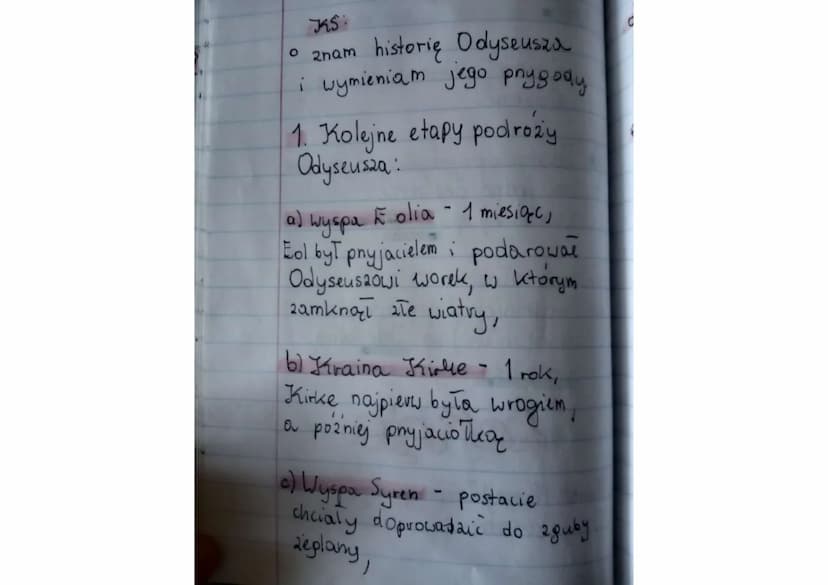 KS:
o znam historię Odyseusza
i wymieniam jego przygody
1. Kolejne etapy podróży
Odyseusza:
a) wyspa Eolia - 1 miesiąc,
Eol był przyjacielem i podarował
Odyseuszowi worek, w którym
zamknął złe wiatry,
b) Kraina Kirke - 1 rok,
Kirke najpierw była wrogiem,
a później przyjaciółką
c) Wyspa Syren - postacie
chciały doprowadzić do zguby